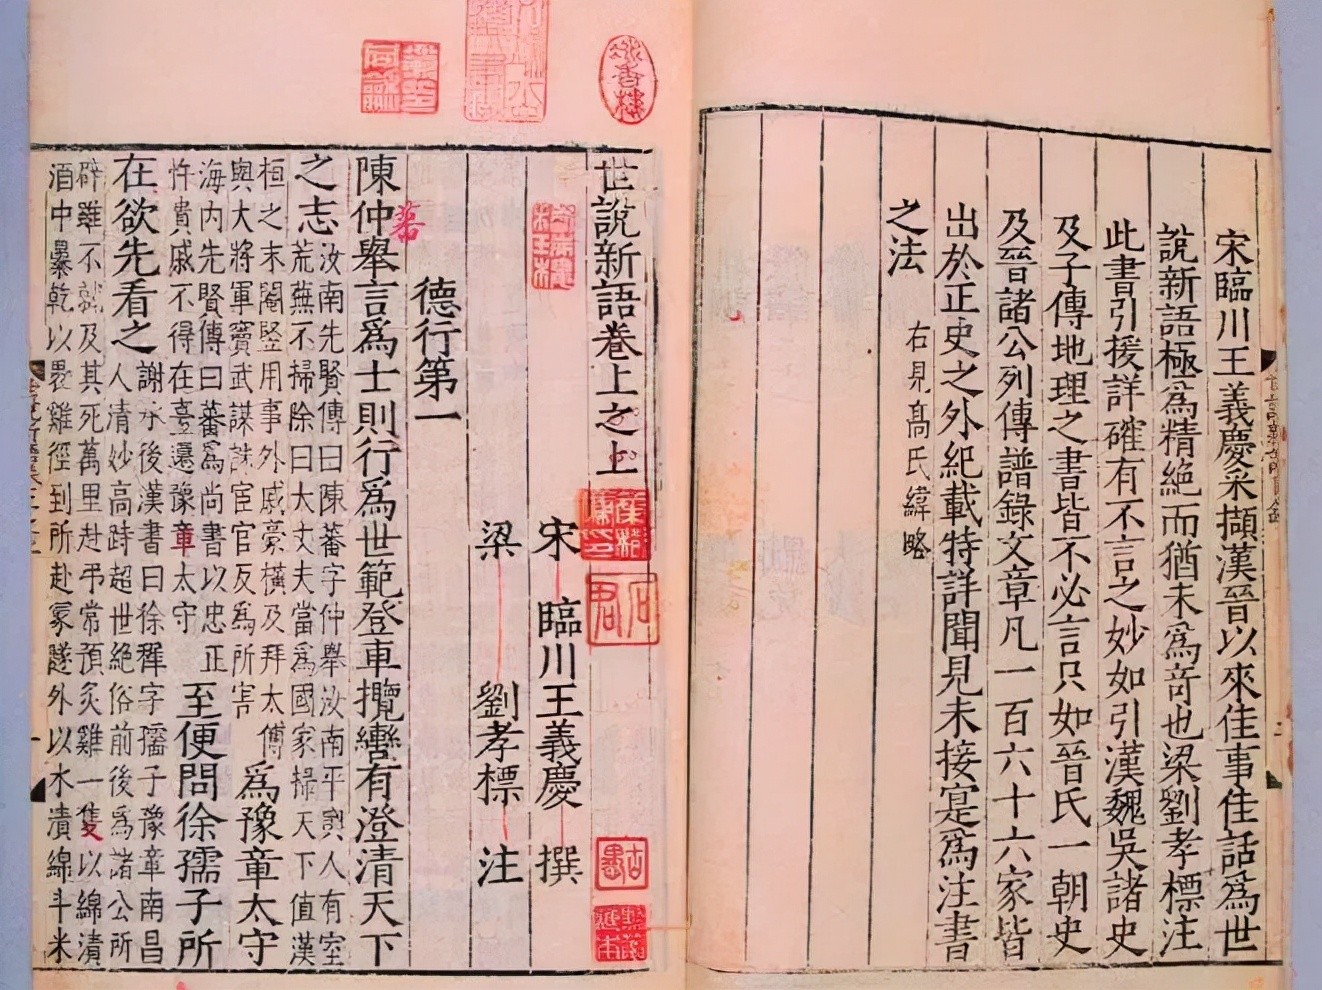 宋臨川王義慶采擷漢晉以來佳事佳話爲世
說新語極爲精絕而猶未爲奇也梁劉孝標注
此書引援詳確有不言之妙如引漢魏吳諸史
及子傳地理之書皆不必言只如晉氏一朝史
及晉諸公列傳譜錄文章凡一百六十六家皆
出於正史之外紀載特詳聞見未接寔爲注書
之法 右見高氏緯略
世說新語卷上之上
宋 臨川王義慶 撰
梁 劉孝標 注
德行第一
陳仲舉言爲士則行爲世範登車攬轡有澄清天下
之志
汝南先賢傳曰陳蕃字仲舉汝南平輿人有室
荒蕪不掃除曰大丈夫當爲國家掃天下值漢
桓之末閹豎用事外戚豪橫及拜太傅
與大將軍竇武謀誅宦官反爲所害
爲豫章太守
海內先賢傳曰蕃爲尚書以忠正
忤貴戚不得在臺遷豫章太守
至便問徐孺子所
在欲先看之
謝承後漢書曰徐穉字孺子豫章南昌
人清妙高跱超世絕俗前後爲諸公所
辟雖不就及其死萬里赴弔常預炙雞一隻以綿漬
酒中暴乾以裹雞徑到所赴冢隧外以水漬綿斗米